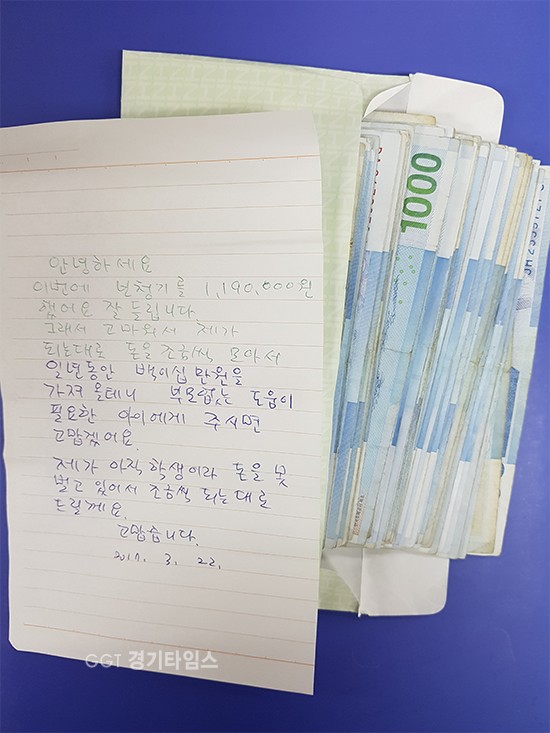 안녕하세요
이번에 보청기를 1,190,000원
했어요 잘 들립니다.
그래서 고마워서 제가
되는대로 돈을 조금씩 모아서
일년동안 백이십만원을
가져 올테니 부모없는 도움이
필요한 아이에게 주시면
고맙겠어요.
제가 아직 학생이라 돈을 못
벌고 있어서 조금씩 되는대로
드릴께요.
고맙습니다.
2017. 3. 22.
GGT 경기타임스
1000